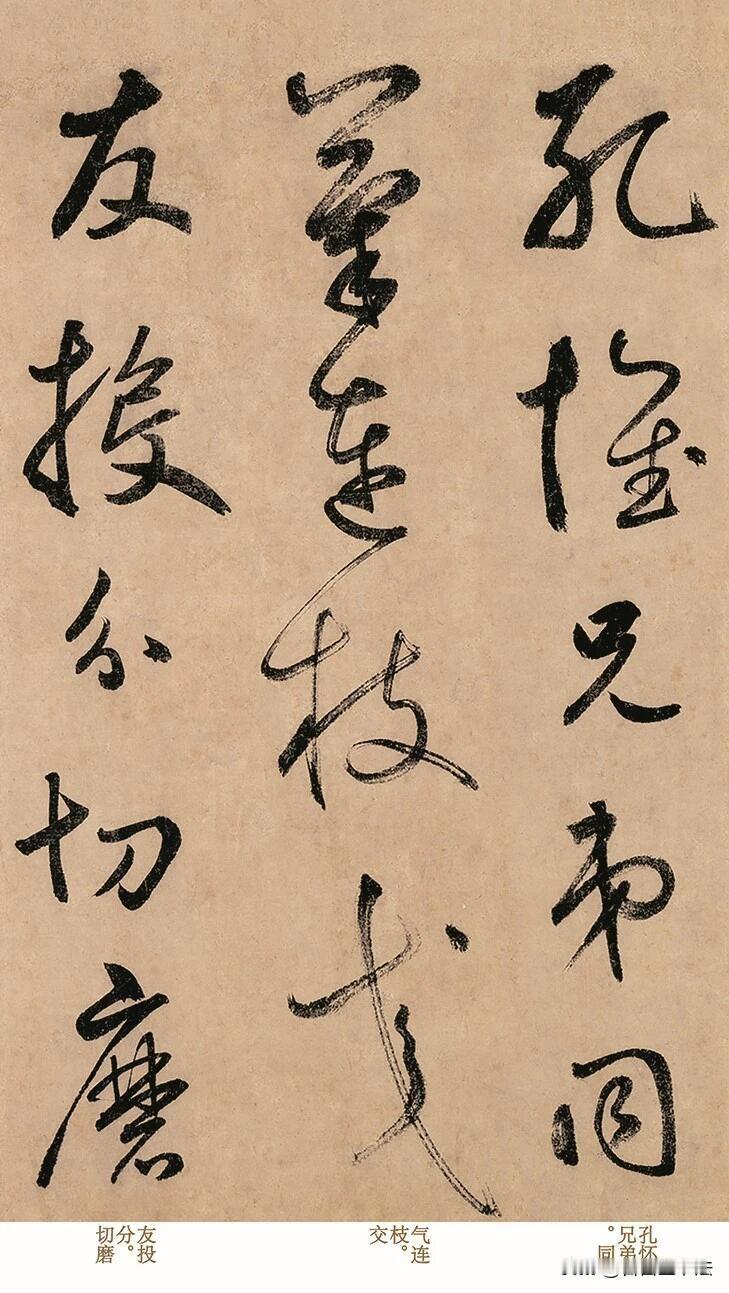 孔懷兄弟同
氣連枝交
友投分切磨
孔怀
兄弟
。同
气连
枝。
交
友投
分。
切磨